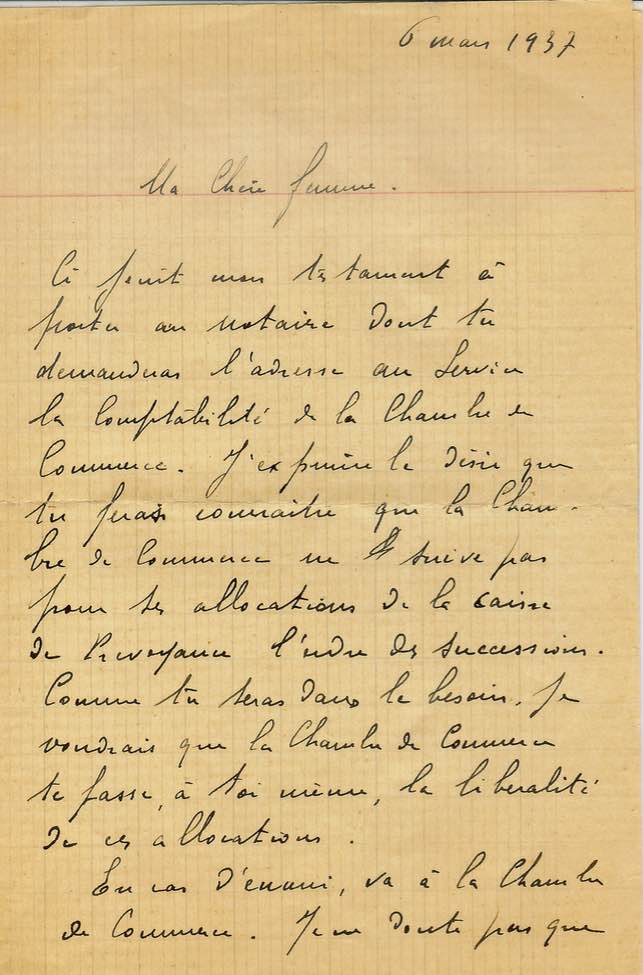 6 mars 1937
Ma Chère femme.
Ci joint mon testament à
porter au notaire dont tu
demanderas l'adresse au Service
la Comptabilité de la Chambre de
Commerce. J'exprime le désir que
tu feras connaitre que la Cham-
bre de Commerce ne suive pas
pour ses allocations de la caisse
de Prevoyance l'ordre des successions.
Comme tu seras dans le besoin, je
voudrais que la Chambre de Commerce
te fasse, à toi même, la liberalité
de ces allocations.
En cas d'ennui, va à la Chambre
de Commerce. Je ne doute pas que